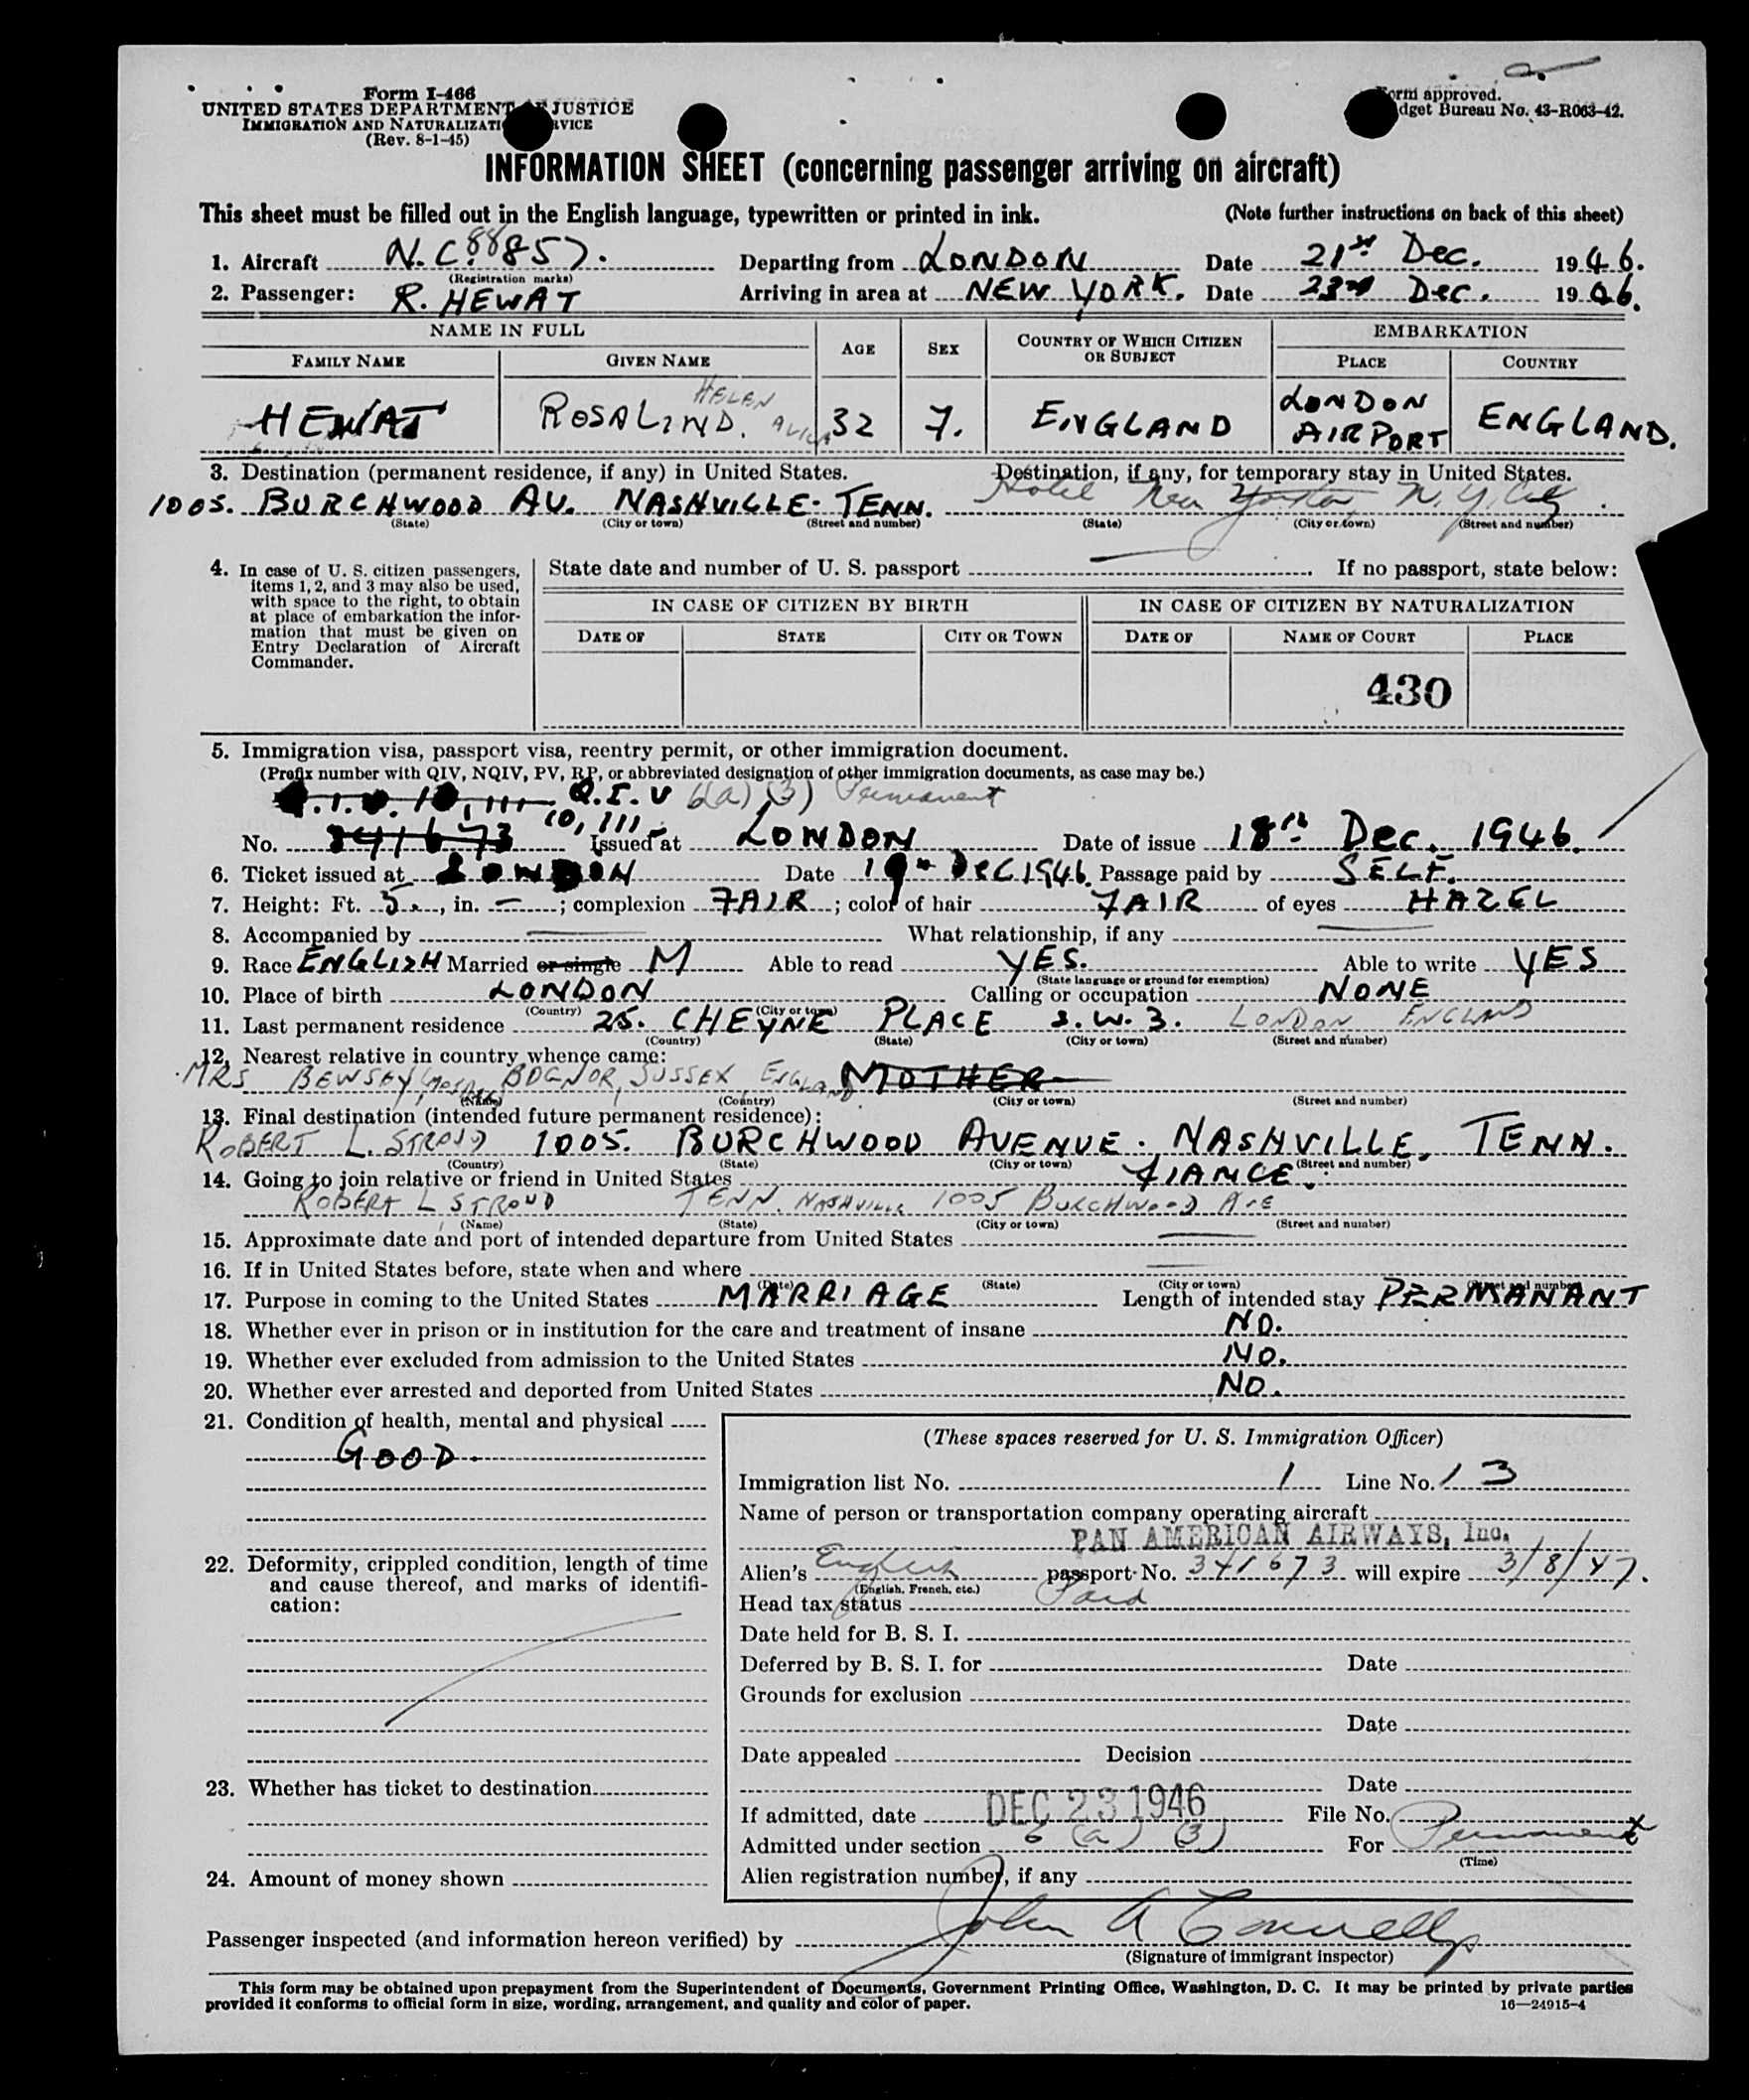 Form I-466
UNITED STATES DEPARTMENT OF JUSTICE
IMMIGRATION AND NATURALIZATION SERVICE
(Rev. 8-1-45)
Form approved.
Budget Bureau No. 43-R063-42.
INFORMATION SHEET (concerning passenger arriving on aircraft)
This sheet must be filled out in the English language, typewritten or printed in ink. (Note further instructions on back of this sheet)
1. Aircraft N.C. 88857. Departing from LONDON Date 21st Dec. 1946.
(Registration marks)
2. Passenger: R. HEWAT Arriving in area at NEW YORK. Date 23rd Dec. 1946.
NAME IN FULL AGE SEX COUNTRY OF WHICH CITIZEN OR SUBJECT EMBARKATION
FAMILY NAME GIVEN NAME PLACE COUNTRY
HEWAT ROSALIND. HELEN 32 F. ENGLAND LONDON AIRPORT ENGLAND.
3. Destination (permanent residence, if any) in United States. Destination, if any, for temporary stay in United States.
1005. BURCHWOOD AV. NASHVILLE. TENN. Hotel New Yorker, N.Y. City
(State) (City or town) (Street and number) (State) (City or town) (Street and number)
4. In case of U. S. citizen passengers, items 1, 2, and 3 may also be used, with space to the right, to obtain at place of embarkation the information that must be given on Entry Declaration of Aircraft Commander.
State date and number of U. S. passport — If no passport, state below:
IN CASE OF CITIZEN BY BIRTH IN CASE OF CITIZEN BY NATURALIZATION
DATE OF STATE CITY OR TOWN DATE OF NAME OF COURT PLACE
430
5. Immigration visa, passport visa, reentry permit, or other immigration document.
(Prefix number with QIV, NQIV, PV, RP, or abbreviated designation of other immigration documents, as case may be.)
Q.I.V. 10,111 Q.I.V 6(a)(3) Permanent
10,111
No. 341673 Issued at LONDON Date of issue 18th Dec. 1946.
6. Ticket issued at LONDON Date 19th DEC 1946. Passage paid by SELF.
7. Height: Ft. 5., in. —; complexion FAIR; color of hair FAIR of eyes HAZEL
8. Accompanied by — What relationship, if any —
9. Race ENGLISH Married or single M Able to read YES. Able to write YES
(State language or ground for exemption)
10. Place of birth LONDON Calling or occupation NONE
(Country) (City or town)
11. Last permanent residence 25. CHEYNE PLACE S.W.3. LONDON ENGLAND
(Country) (State) (City or town) (Street and number)
12. Nearest relative in country whence came:
MRS BEWSEY, BOGNOR, SUSSEX, ENGLAND MOTHER
(Name) (Country) (City or town) (Street and number)
13. Final destination (intended future permanent residence):
ROBERT L. STROUD 1005. BURCHWOOD AVENUE. NASHVILLE, TENN.
(Country) (State) (City or town) (Street and number)
14. Going to join relative or friend in United States FIANCE.
ROBERT L STROUD TENN. NASHVILLE 1005 BURCHWOOD AVE
(Name) (State) (City or town) (Street and number)
15. Approximate date and port of intended departure from United States —
16. If in United States before, state when and where —
(Date) (State) (City or town) (Street and number)
17. Purpose in coming to the United States MARRIAGE Length of intended stay PERMANANT
18. Whether ever in prison or in institution for the care and treatment of insane NO.
19. Whether ever excluded from admission to the United States NO.
20. Whether ever arrested and deported from United States NO.
21. Condition of health, mental and physical
GOOD.
22. Deformity, crippled condition, length of time and cause thereof, and marks of identification:
23. Whether has ticket to destination
24. Amount of money shown
(These spaces reserved for U. S. Immigration Officer)
Immigration list No. 1 Line No. 13
Name of person or transportation company operating aircraft
PAN AMERICAN AIRWAYS, Inc.
Alien's English passport No. 341673 will expire 3/8/47.
(English, French, etc.)
Head tax status Paid
Date held for B. S. I.
Deferred by B. S. I. for Date
Grounds for exclusion
Date
Date appealed Decision
Date
If admitted, date DEC 23 1946 File No.
Admitted under section 6(a)(3) For Permanent
(Time)
Alien registration number, if any
Passenger inspected (and information hereon verified) by John A Connelly
(Signature of immigrant inspector)
This form may be obtained upon prepayment from the Superintendent of Documents, Government Printing Office, Washington, D. C. It may be printed by private parties
provided it conforms to official form in size, wording, arrangement, and quality and color of paper. 16—24915-4